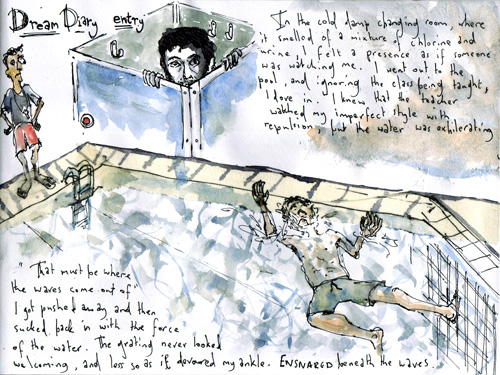 Dream Diary entry
In the cold damp changing room, where
it smelled of a mixture of chlorine and
urine I felt a presence as if someone
was watching me. I went out to the
pool and ignoring the class being taught,
I dove in. I knew that the teacher
watched my imperfect style with
repulsion, but the water was exhilerating
"That must be where
the waves come out of"
I got pushed away and then
sucked back in with the force
of the water. The grating never looked
welcoming, and less so as it devoured my ankle. ENSNARED beneath the waves.